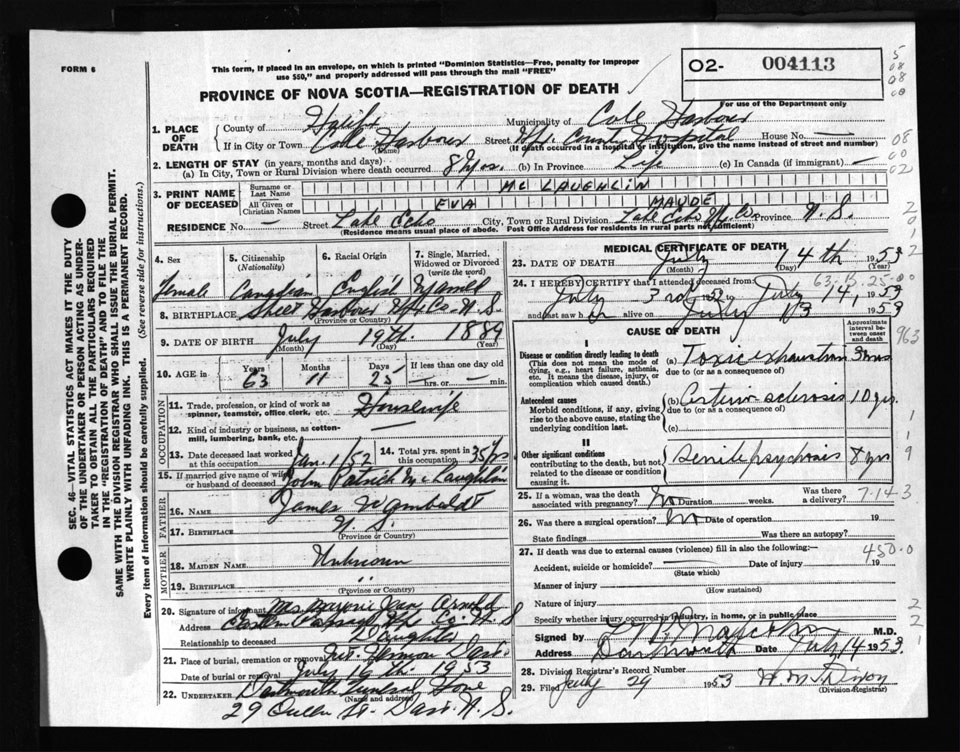 FORM 6
This form, if placed in an envelope, on which is printed "Dominion Statistics—Free, penalty for improper
use 550," and properly addressed will pass through the mail "FREE"
02- 004113
PROVINCE OF NOVA SCOTIA—REGISTRATION OF DEATH
For use of the Department only
1. PLACE OF DEATH
County of Halifx Municipality of Cole Harbour
If in City or Town Cole Harbour Street Hfx. County Hospital House No. —
(Name) (If death occurred in a hospital or institution, give the name instead of street and number)
2. LENGTH OF STAY (in years, months and days)
(a) In City, Town or Rural Division where death occurred (b) In Province Life (c) In Canada (if immigrant) —
3. PRINT NAME OF DECEASED
Surname or Last Name MC LAUGHLIN
All Given or Christian Names EVA MAUDE
RESIDENCE No. — Street Lake Echo City, Town or Rural Division Lake Echo Hfx Co Province N.S.
(Residence means usual place of abode. Post Office Address for residents in rural parts not sufficient)
4. Sex Female
5. Citizenship (Nationality) Canadian
6. Racial Origin English
7. Single, Married, Widowed or Divorced (write the word) Married
8. BIRTHPLACE Sheet Harbour Hfx. Co. N.S.
(Province or Country)
9. DATE OF BIRTH July 19th. 1889
(Month) (Day) (Year)
10. AGE in Years 63 Months 11 Days 25 If less than one day old
— hrs. or — min.
OCCUPATION
11. Trade, profession, or kind of work as spinner, teamster, office clerk, etc. Housewife
12. Kind of industry or business, as cotton-mill, lumbering, bank, etc.
13. Date deceased last worked at this occupation Jan. 1/52 14. Total yrs. spent in this occupation 35 yrs
15. If married give name of wife or husband of deceased John Patrick McLaughlin
FATHER
16. Name James
17. Birthplace N.S.
(Province or Country)
MOTHER
18. Maiden Name Unknown
19. Birthplace "
(Province or Country)
20. Signature of informant Mrs. Marjorie Jean Arnold
Address Eastern Passage Hfx Co. N.S
Relationship to deceased Daughter
21. Place of burial, cremation or removal Mt. Hermon Dart.
Date of burial or removal July 16th. 1953
22. UNDERTAKER Dartmouth Funeral Home
(Name and address)
29 Queen St. Dart. N.S.
MEDICAL CERTIFICATE OF DEATH
23. DATE OF DEATH July 14th 1953
(Month) (Day) (Year)
24. I HEREBY CERTIFY that I attended deceased from: 63-
July 3rd 1952 to July 14, 1953
and last saw her alive on July 13 1953
CAUSE OF DEATH
Approximate interval between onset and death
I
Disease or condition directly leading to death
(This does not mean the mode of dying, e.g., heart failure, asthenia, etc. It means the disease, injury, or complication which caused death.)
(a) Toxic exhaustion
due to (or as a consequence of)
Antecedent causes
Morbid conditions, if any, giving rise to the above cause, stating the underlying condition last.
(b) sclerosis 10 yrs.
due to (or as a consequence of)
(c)
II
Other significant conditions
contributing to the death, but not related to the disease or condition causing it.
Senile psychosis 8 yrs
25. If a woman, was the death associated with pregnancy? No Duration weeks. Was there a delivery?
7.143
26. Was there a surgical operation? No Date of operation 19
State findings Was there an autopsy?
27. If death was due to external causes (violence) fill in also the following:—
450.0
Accident, suicide or homicide? — Date of injury 19
(State which)
Manner of injury
(How sustained)
Nature of injury
Specify whether injury occurred in industry, in home, or in public place
Signed by M.D.
Address Dartmouth Date July 14 1953
28. Division Registrar's Record Number
29. Filed July 29 1953
(Division Registrar)
SEC. 46—VITAL STATISTICS ACT MAKES IT THE DUTY
OF THE UNDERTAKER OR PERSON ACTING AS UNDER-
TAKER TO OBTAIN ALL THE PARTICULARS REQUIRED
IN THE "REGISTRATION OF DEATH" AND TO FILE THE
SAME WITH THE DIVISION REGISTRAR WHO SHALL ISSUE THE BURIAL PERMIT.
WRITE PLAINLY WITH UNFADING INK. THIS IS A PERMANENT RECORD.
Every item of information should be carefully supplied. (See reverse side for instructions.)